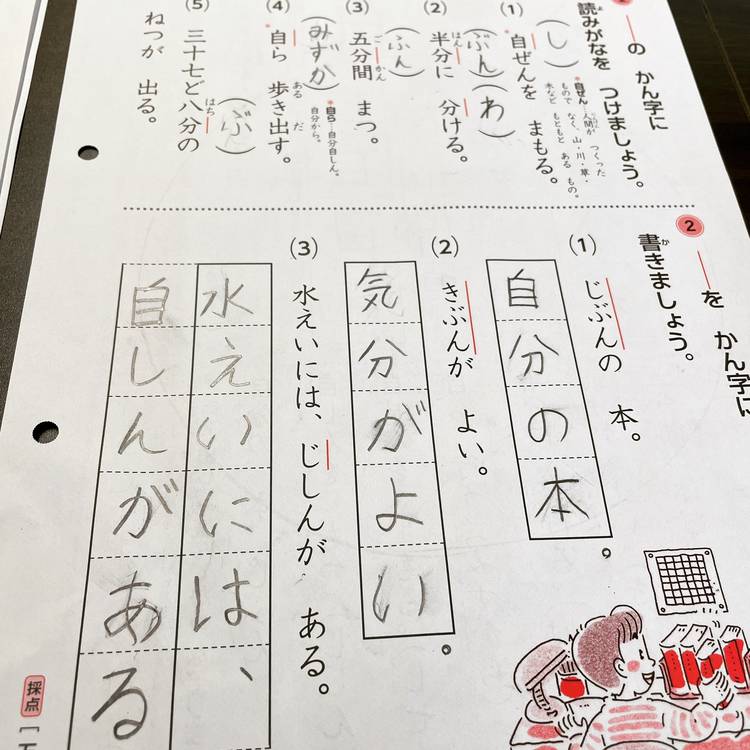 の かん字に
読みがなを つけましょう。
(1)
(し)
自ぜんを まもる。
*自ぜん…人間が つくった
もので なく、山・川・草・
木など もともと ある もの。
(2)
(ぶん)(わ)
半分に 分ける。
はん
(3)
(ふん)
五分間 まつ。
ご かん
(4)
(みずか)
自ら 歩き出す。
ある だ
*自ら…自分自しん。
自分から。
(5)
(ぶ)
三十七ど八分の
はち
ねつが 出る。
2
を かん字に
書きましょう。
か
(1)
じぶんの 本。
自分の本。
(2)
きぶんが よい。
気分がよい。
(3)
水えいには、じしんが ある。
水えいには、
自しんがある
採点